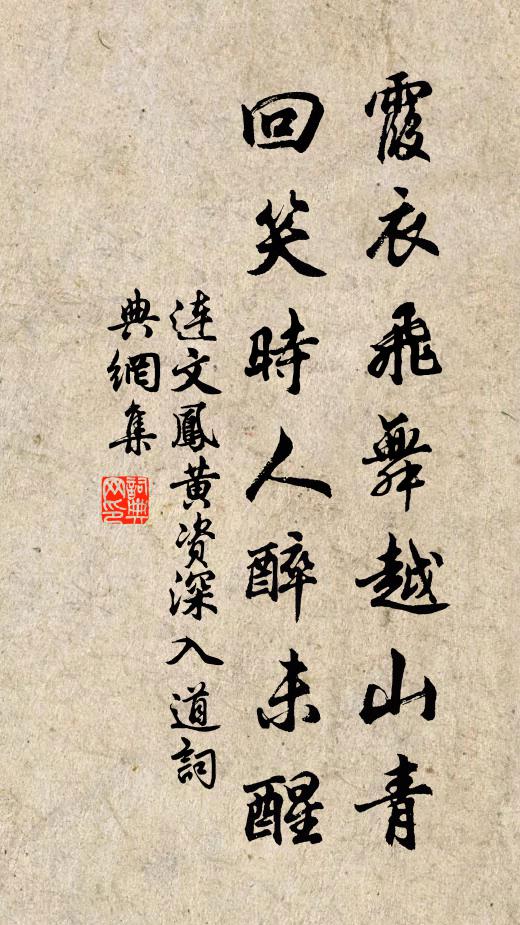 霞衣飛舞越山青
回笑時人醉未醒
連文鳳黄資深入道詞
典網集
詞典網印